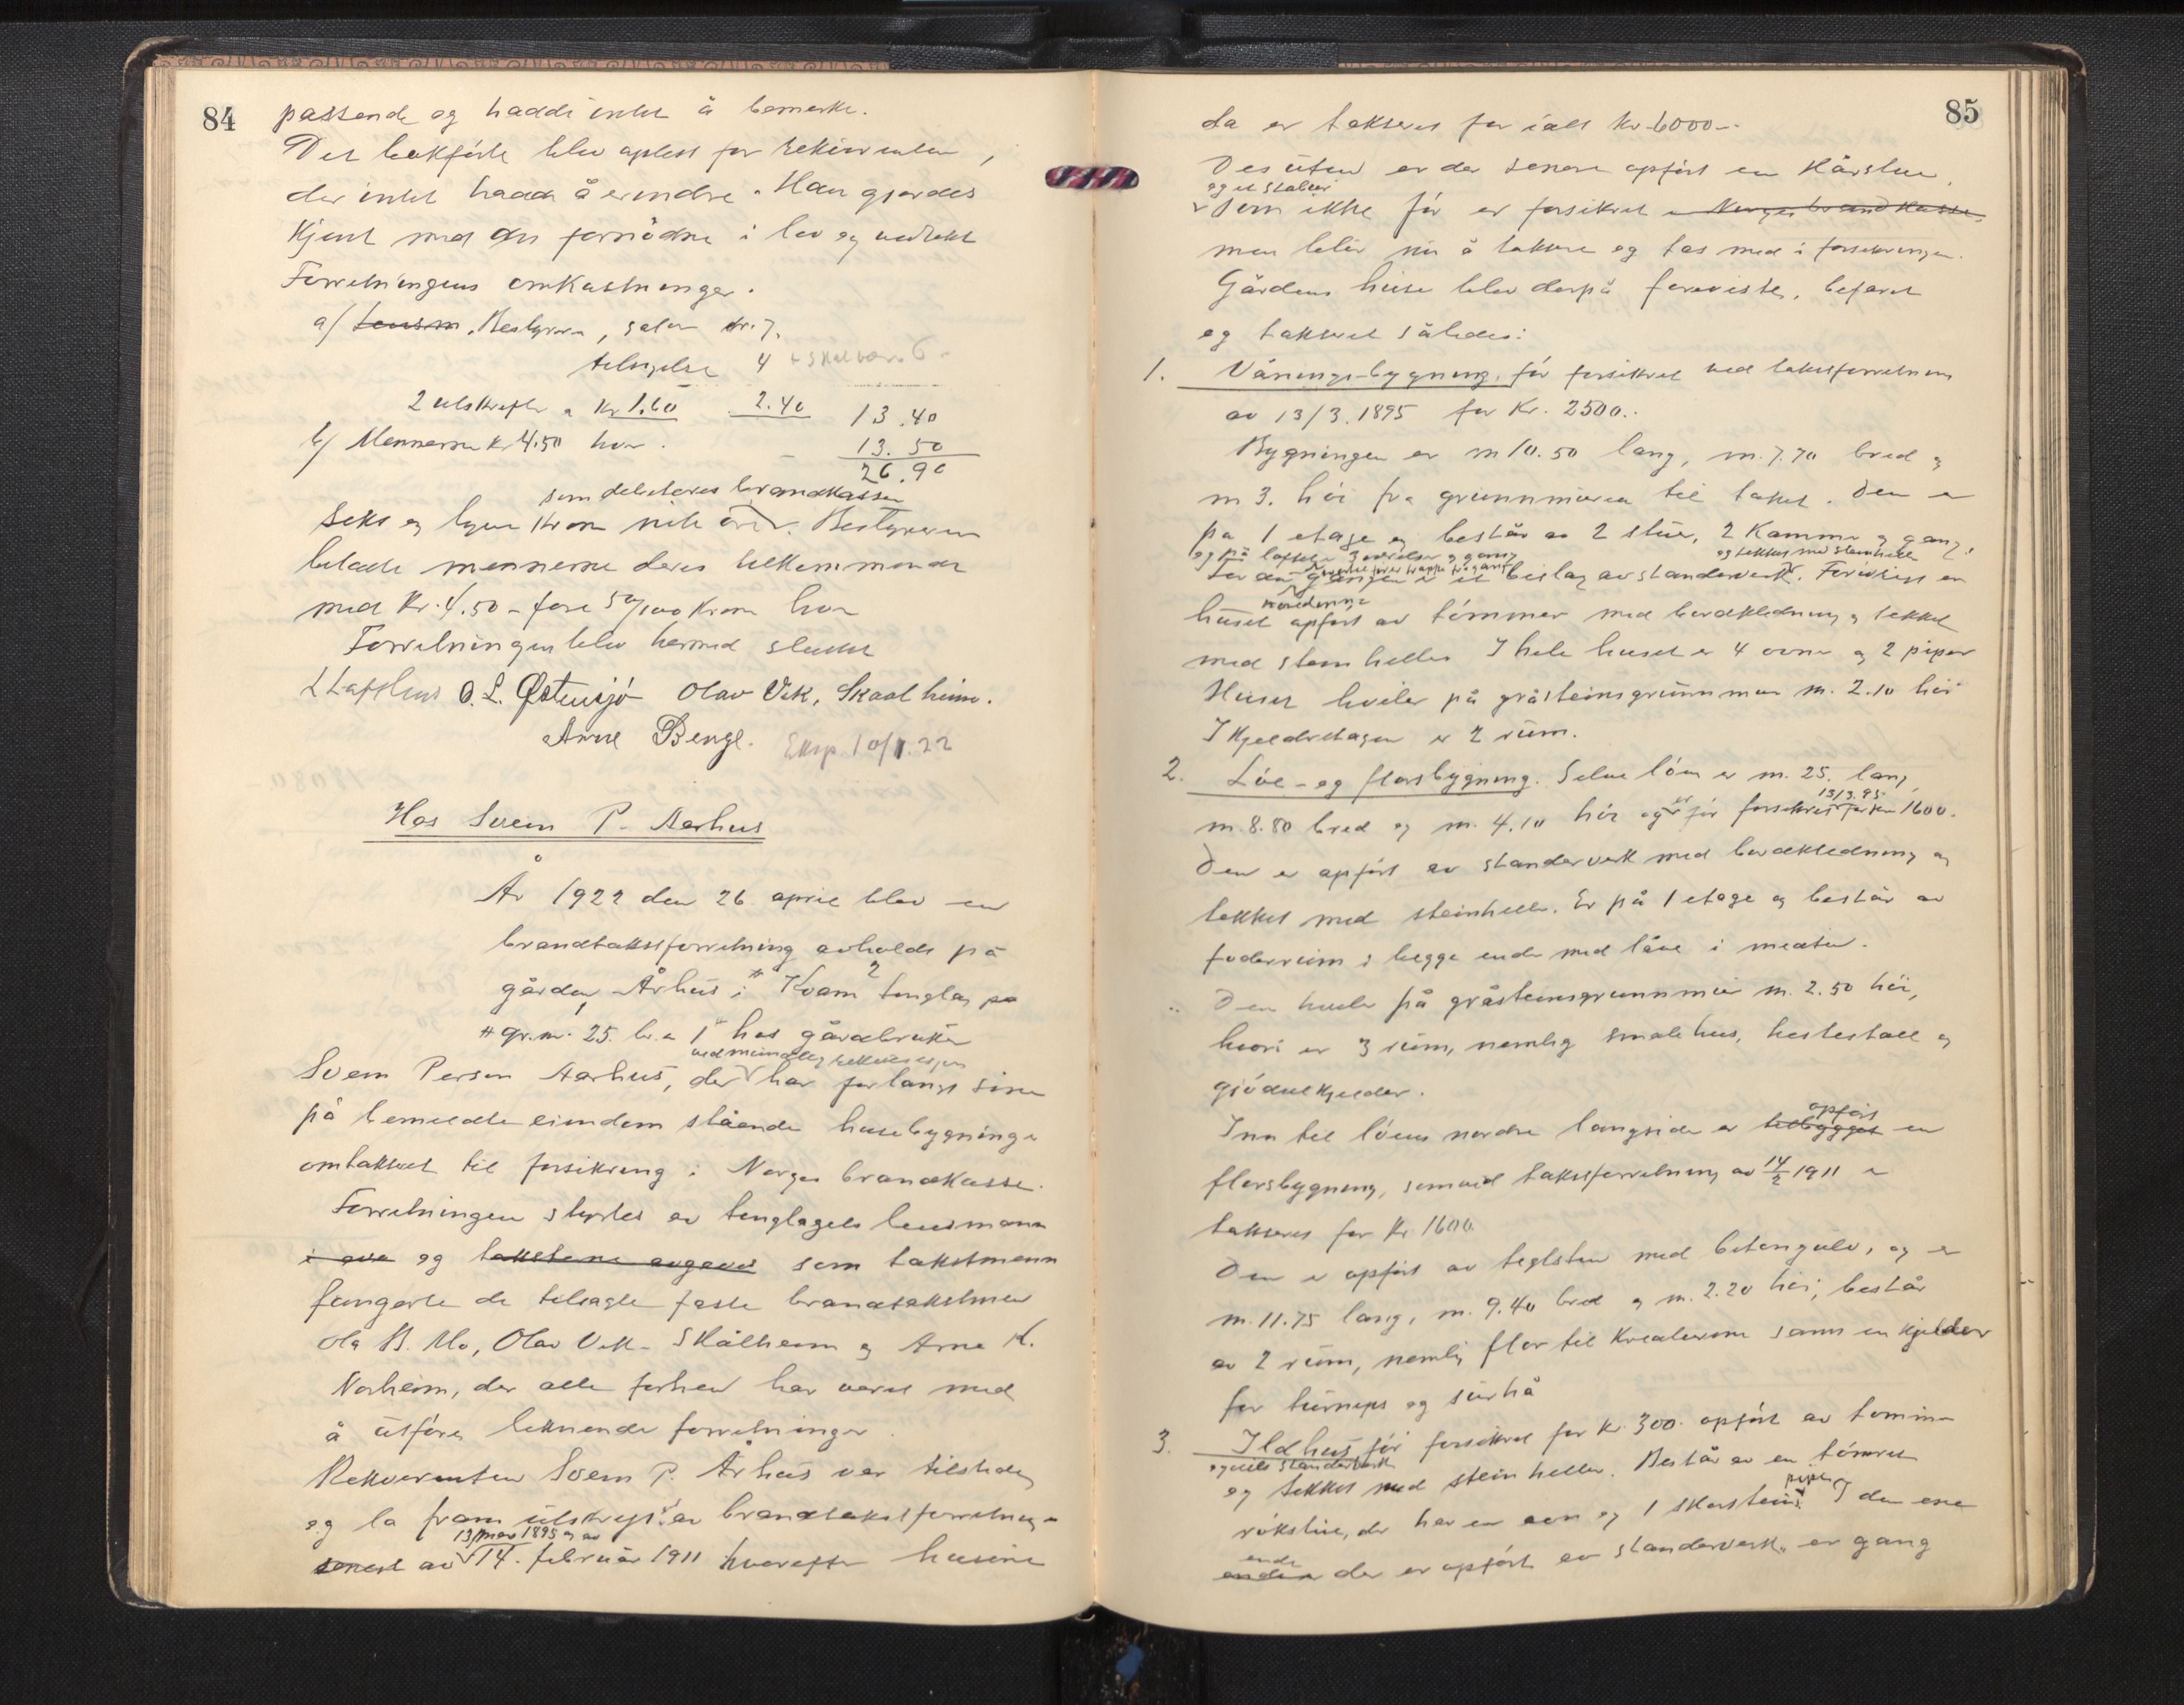 84
passende og hadde intet å bemerke.
Det bokførte blev oplest for rekvirenten,
der intet hadde å erindre. Han gjordes
kjent med det fornødne i lov og vedtekt
Forretningens omkostninger.
a/ Lensm. Bestyrer, salær kr. 7.
tilsyelse 4
2 utskrefter a Kr 1.60 2.40 13.40
b/ Mennerne Kr 4.50 hver. 13.50
26.90
som debiteres brandkassen
Seks og tyve Kroner nitti øre. Bestyreren
betalte mennerne deres tilkommende
med Kr. 4.50 - fire 50/100 Kroner hver
Forretningen blev hermed sluttet
L Lofthus O. L. Østensjö Olav Vik, Skaalheim.
Arne Berge. Eksp. 10/1.22
Hos Svein P. Aarhus
År 1922 den 26 april blev en
brandtakstforretning avholdt på
gården Århus i Kvam tinglag på
gr.nr. 25. br.nr 1 hos gårdbruker
ved muntlig rekvisisjon
Svein Person Aarhus, der har forlangt sine
på bemeldte eiendom stående husebygninger
omtaksert til forsikring i Norges brandkasse.
Forretningen styrtes av tinglagets lensmann
og takstene avgaves som takstmenn
fungerte de tilsagte faste brandtakstmen
Ola B. Mo, Olav Vik - Skålheim og Arne H.
Norheim, der alle forhen har været med
å utføre liknende forretninger.
Rekvirenten Svein P. Århus var tilstede
og la fram utskrift av brandtakstforretning
13 mars 1895 og av
senest av 14. februar 1911 hvorefter husene
85
da er taksert for ialt Kr. 6000.-
Desuten er der senere opført en Kårstue,
og et stabur
som ikke før er forsikret i Norges brandkasse,
men blir nu å taksere og tas med i forsikringen.
Gårdens huse blev derpå forevist, befaret
og taksert således:
1. Våningsbygning, før forsikret ved takstforretning
av 13/3.1895 for Kr. 2500.
Bygningen er m 10.50 lang, m. 7.70 bred og
m 3. høi fra grunnmuren til taket. Den er
på 1 etage og består av 2 stuer, 2 Kammer og gang,
og på loftet 3 værelser og gang og tekket med steinhelle
gangen er et bislag av standerverk. Forøvrigt er
huset opført av tømmer med bordkledning og tekket
med steinheller I hele huset er 4 ovner og 2 piper
Huset hviler på gråsteinsgrunnmur m. 2.10 høi
I Kjelderetagen er 2 rum.
2. Løe- og florsbygning. Selve løen er m. 25. lang,
13/3.95
m. 8.80 bred og m. 4.10 høi og er før forsikret for Kr 1600.
Den er opført av standerverk med bordkledning og
tekket med steinheller. Er på 1 etage og består av
foderrum i begge ender med låve i midten.
Den hviler på gråsteinsgrunnmur m. 2.50 høi,
hvori er 3 rum, nemlig smalehus, hestestall og
gjødselkjelder.
opført
Inn til løens nordre langside er tilbygget en
florsbygning, som ved takstforretning av 14/2 1911 er
taksert for Kr 1600
Den er opført av teglsten med betongulv, og er
m. 11.75 lang, m. 9.40 bred og m. 2.20 høi, består
av 2 rum, nemlig flor til Kreaturene samt en kjelder
for turneps og surhå
3. Ildhus før forsikret for Kr. 300. opført av tømmer
og dels standerverk
og tekket med steinheller. Består av en tømret
pipe
rökstue, der har en ovn og 1 skorstein. I den ene
ende
enden der er opført av standerverk er gang